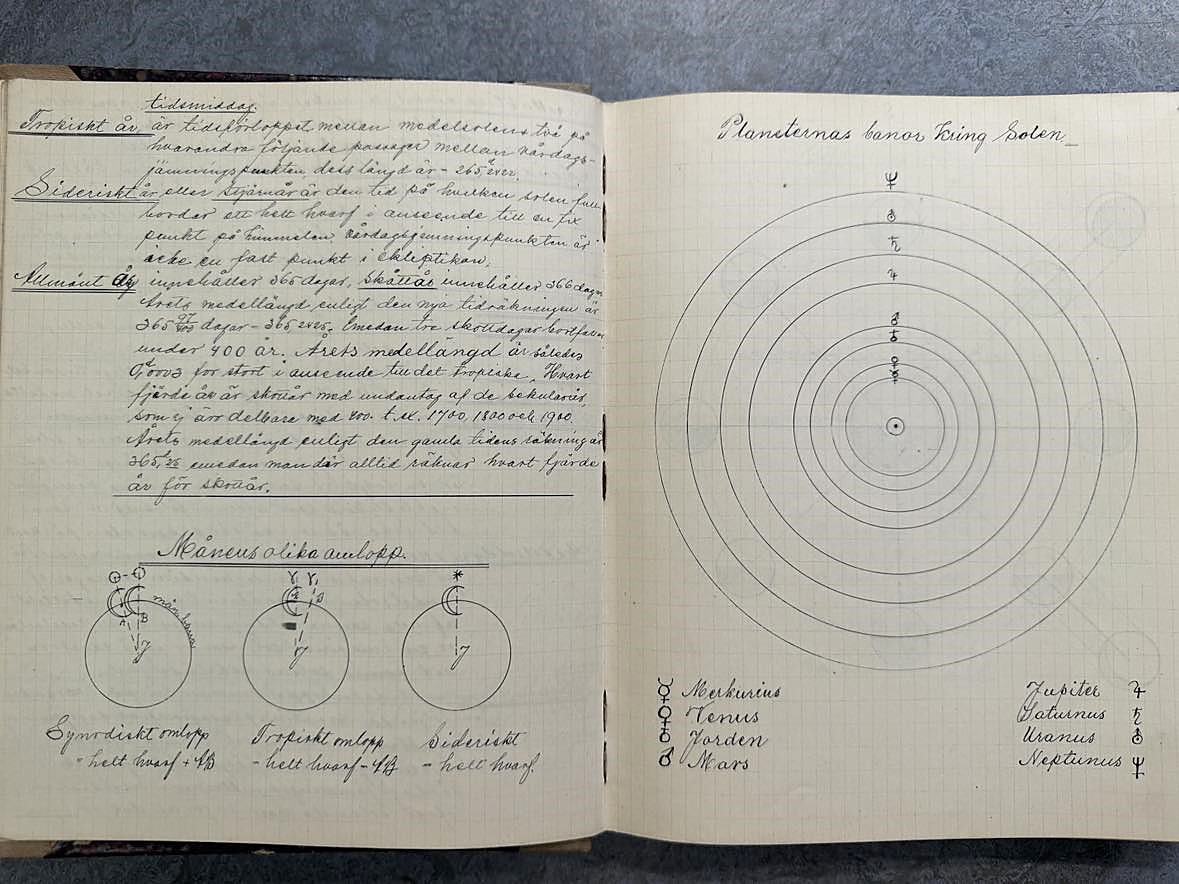 tidsmiddag.
Tropiskt år, är tidsförloppet mellan medelsolens två på
hvarandra följande passager mellan vårdags-
jämningspunkten, dess längd är - 265,ᵈ2422.
Sideriskt år eller stjärnår är den tid på hvilken solen full-
bordar ett helt hvarf i anseende till en fix
punkt på himmelen, vårdagsjemningspunkten är
icke en fast punkt i ekleptikan.
Allmänt år, innehåller 365 dagar, Skottår innehåller 366 dagar
Årets medellängd enligt den nya tidräkningen är
365 97/400 dagar - 365,2425. Emedan tre skottdagar bortfaller
under 400 år. Årets medellängd är således
0,ᵈ0003 för stort i anseende till det tropiska. Hvart
fjärde år är skottår med undantag af de sekularår,
som ej äro delbara med 400. t.ex. 1700, 1800 och 1900.
Årets medellängd enligt den gamla tidens räkning är
365,ᵈ25 emedan man där alltid räknar hvart fjärde
år för skottår.
Månens olika omlopp.
☉ - ☉
γ γ,
*
månbana
A B
J
J
J
Synodiskt omlopp
- helt hvarf + AB
Tropiskt omlopp
- helt hvarf - AB
Sideriskt
- helt hvarf.
Planeternas banor kring Solen
♆
⛢
♄
♃
♂
♁
♀
☿
☿ Merkurius
♀ Venus
♁ Jorden
♂ Mars
Jupiter ♃
Saturnus ♄
Uranus ⛢
Neptunus ♆